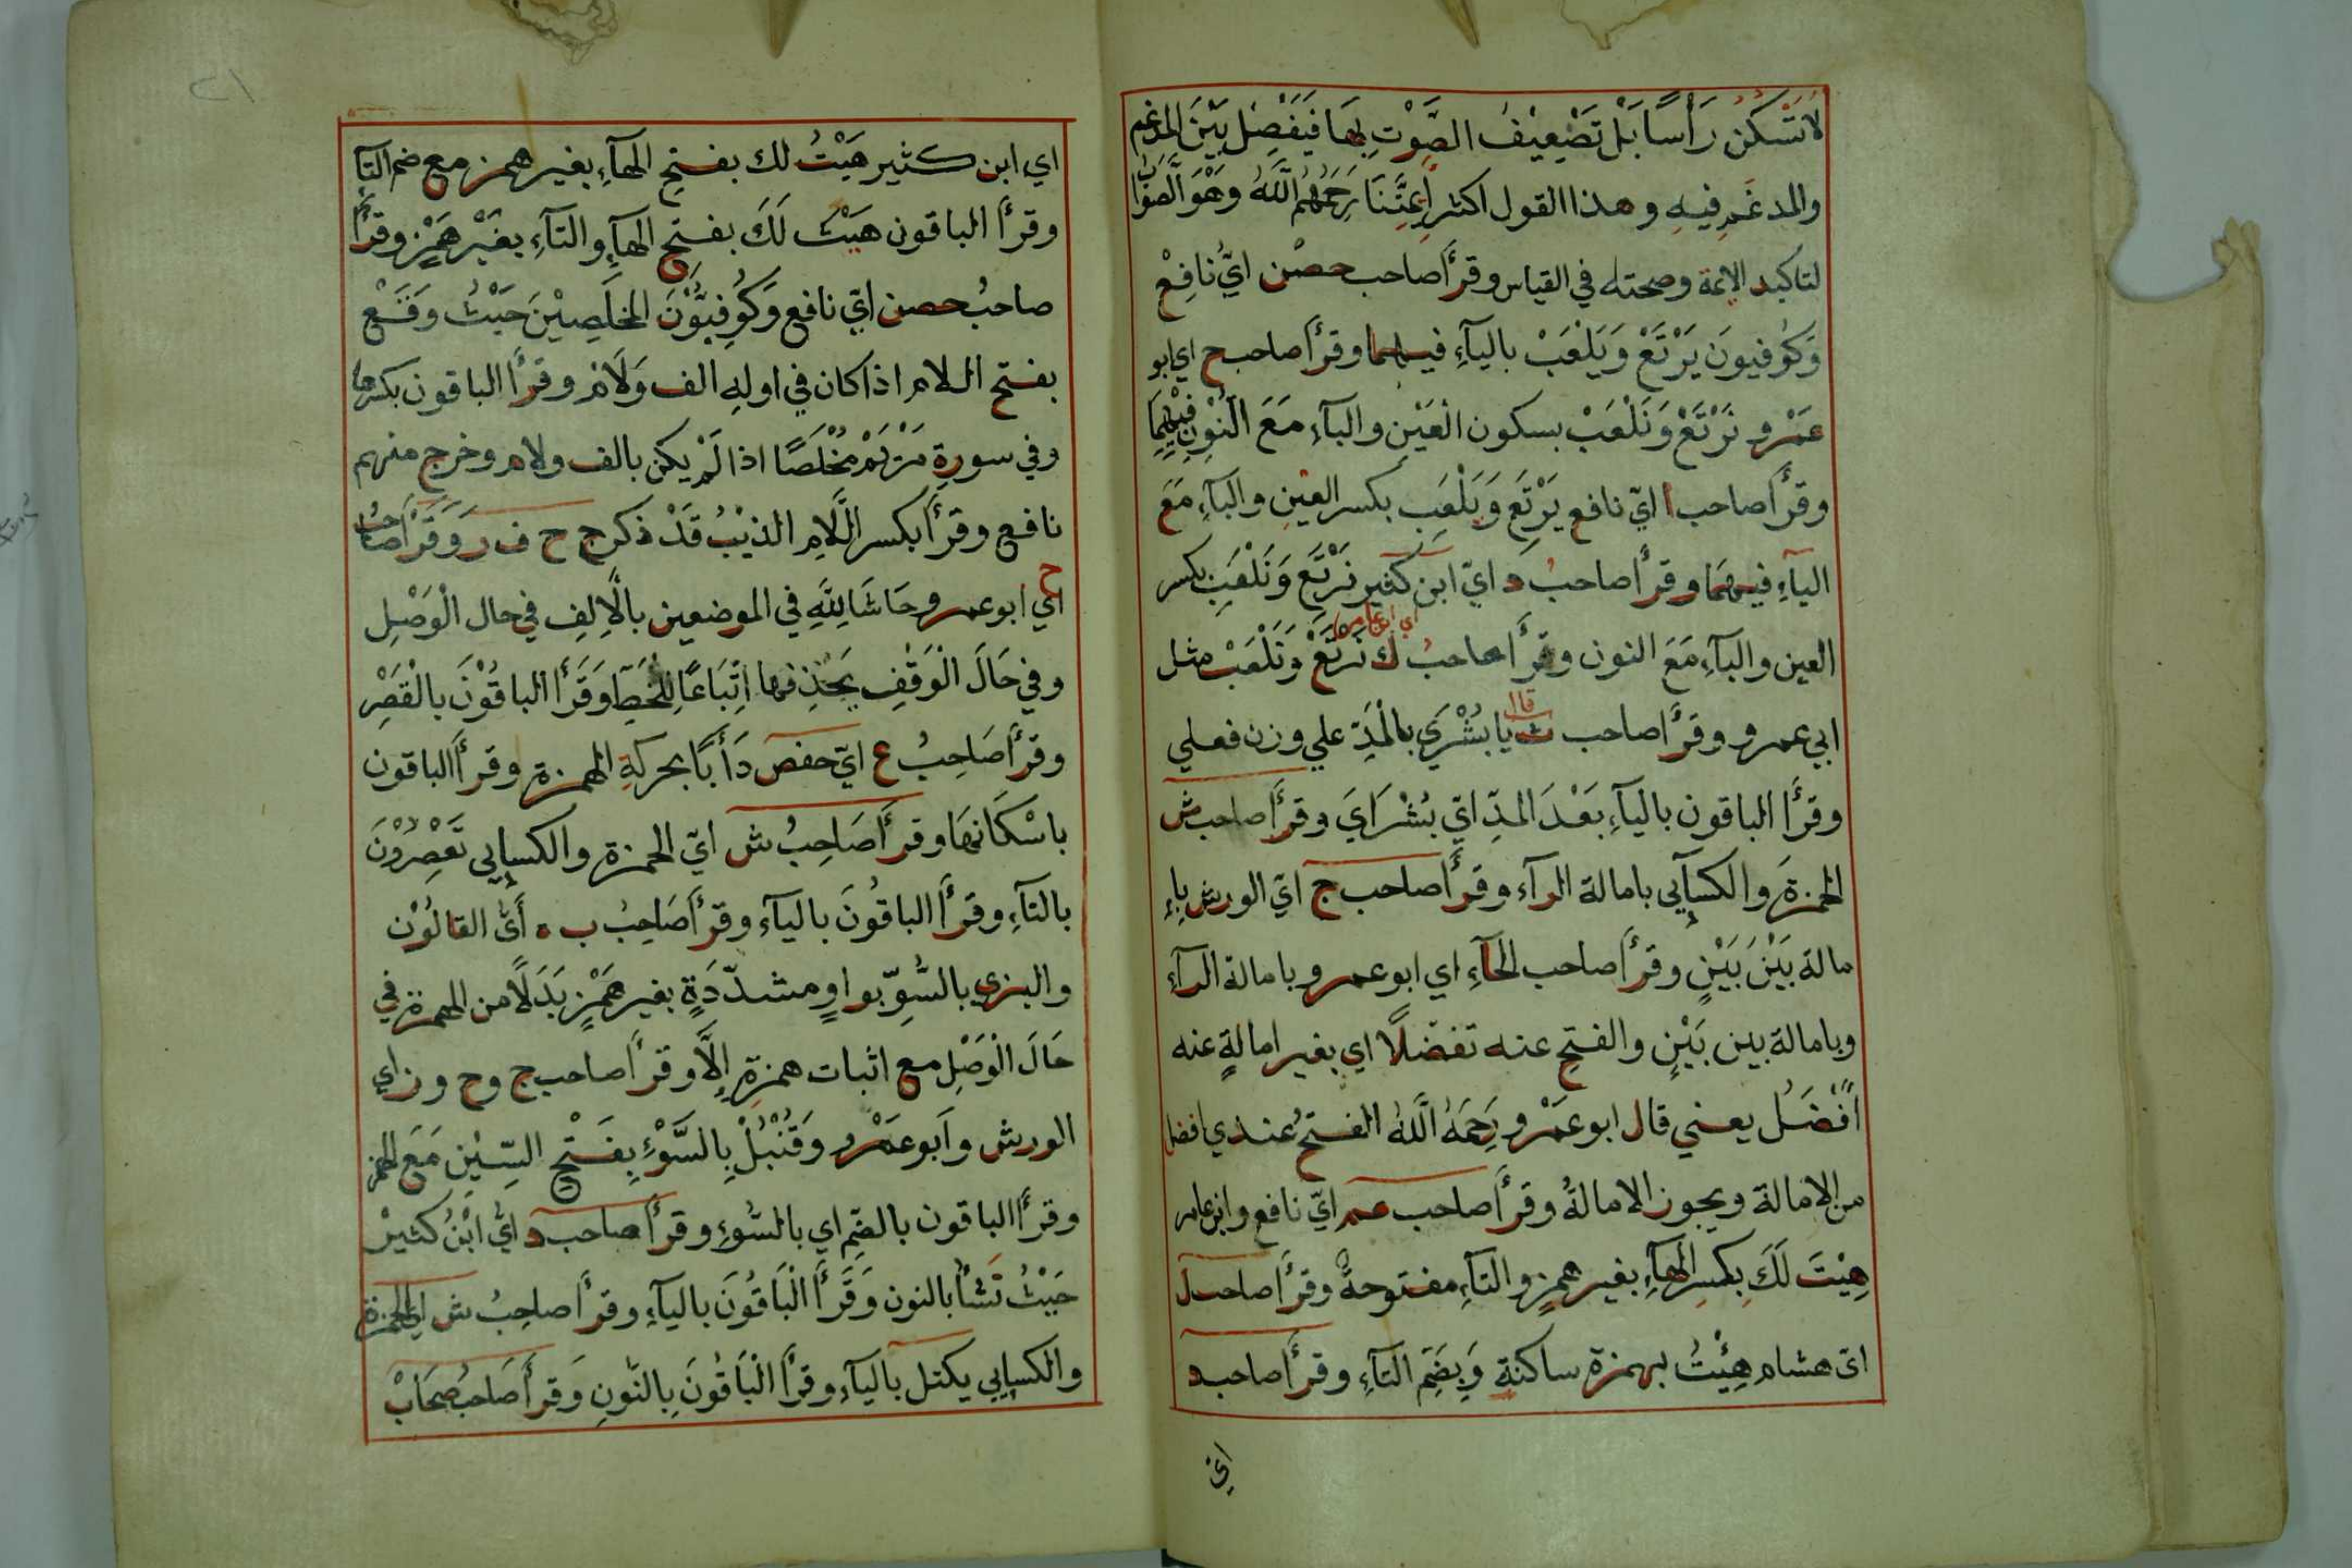 لَا تَسْكُنُ رَأْسًا بَلْ تَضْعِيْفُ الصَّوْتِ بِهَا فَيَفْصِلُ بَيْنَ المدغم
والمدغَمِ فيهِ وهذا القول اكثر اَئِمَّتِنَا رَحِمَهُمُ اللَّهُ وَهُوَ الصَّوَابُ
لتاكيد الائمة وصحته في القياس وقرأ صاحب حصن ايْ نافِعْ
وَكُوفيونَ يَرْتَعْ وَيَلْعَبْ باليآءِ فيهما وقرأ صاحب ح اي ابو
عَمْرو نَرْتَعْ وَنَلْعَبْ بسكون العَيْنِ والبآءِ مَعَ النّوْنِ فِيْهِمَا
وقرأ صاحب ا ايّ نافع يَرْتَعِ وَيَلْعَبِ بكسر العينِ والبآءِ مَعَ
اليآءِ فيهمَا وقرأ صاحبُ د ايّ ابن كثير نَرْتَعِ وَنَلْعَبِ بكسر
العين والبآءِ مَعَ النون وقرأ صاحبُ ك نَرْتَعْ وَنَلْعَبْ مثل
اي ابن عامر
ابي عمرو وقرأ صاحب ث يا بُشْرَي بالْمَدِّ علي وزن فعلي
قال
وقرأ الباقون باليآءِ بَعْدَ المدِّ ايّ بُشْرَايَ وقرأ صاحب ش
الحمزةَ والكسآيي بامالة الرآء وقرأ صاحب ج ايّ الورش باِ
مالة بَيْنَ بَيْنٍ وقرأ صاحب الحآءِ اي ابو عمرو بامالة الرآءِ
وبامالة بين بَيْنٍ والفتح عنه تفضّلاً اي بغير امالةٍ عنه
اَفْضَلُ يعني قال ابو عَمْرو رَحِمَهُ اللَّهُ الفتحُ عندي افضل
من الامالة ويجوز الامالةُ وقرأ صاحب عم ايّ نافع وابن عامر
هِيْتَ لَكَ بِكسر الهآءِ بغير همزٍ والتآءِ مفتوحةً وقرأ صاحب ل
ايّ هشام هِئْتُ بهمزة ساكنةٍ وَبِضَمِّ التآءِ وقرأ صاحب د
ايْ
٢١
اي ابن كثير هَيْتُ لك بفتح الهآءِ بغير همز مع ضم التآءِ
وقرأ الباقون هَيْتَ لَكَ بفتح الهآءِ والتآءِ بغَيْر هَمْزٍ وقرأ
صاحبُ حصن ايّ نافع وَكُوفِيُّوْنَ المُخْلَصِيْنَ حَيْثُ وَقَعْ
بفتح اللام اذا كان في اولهِ الف وَلَام وقرأ الباقون بكسرها
وفي سورةِ مَرْيَمَ مُخْلَصًا اذا لَمْ يكن بالف ولام وخرج منهم
نافع وقرأ بكسر اللَّامِ الذيْبُ قَدْ ذكر ج ح ف ر وَقَرَأَ صَاحبُ
ح
اي ابو عمرو حَاشَا لِلَّهِ في الموضعين بالْاَلِفِ في حال الْوَصْلِ
وفي حَالَ الْوَقْفِ يحذفها اتِّبَاعًا لِلْخَطِّ وَقَرَأَ الباقُوْنَ بالْقَصْرِ
وقرأ صَاحِبُ ع ايّ حفص دَأَبًا بحركةِ الهمزة وقرأ الباقون
باسْكَانهَا وقرأ صَاحِبُ ش ايّ الحمزة والكسايي تَعْصِرُوْنَ
بالتآءِ وقرأ الباقُونَ باليآءِ وقرأ صَاحِبُ ب ه أَيُّ القالُوْن
والبزي بالسُّوِّ بواوٍ مشدّدَةٍ بغير هَمْزٍ بَدَلًا من الهمزة في
حَالَ الْوَصْلِ مع اثبات همزةِ اِلَّا وقرأ صاحب ج وح وز اي
الورش وَاَبو عَمْرو وَقُنْبُلْ بِالسَّوْءِ بِفَتْحِ السِّيْنِ مَعَ الهمز
وقرأ الباقون بالضّمِ اي بالسُّوءِ وقرأ صاحب د ايُّ ابْنُ كَثيرْ
حَيْثُ نَشَأُ بالنون وَقَرَأَ الْبَاقُونَ باليآءِ وقرأ صاحِبُ ش اي الحمزة
والكسايي يكتل باليآءِ وقرأ الْبَاقُونَ بِالنّونِ وَقرأ صَاحبُ صِحَابْ